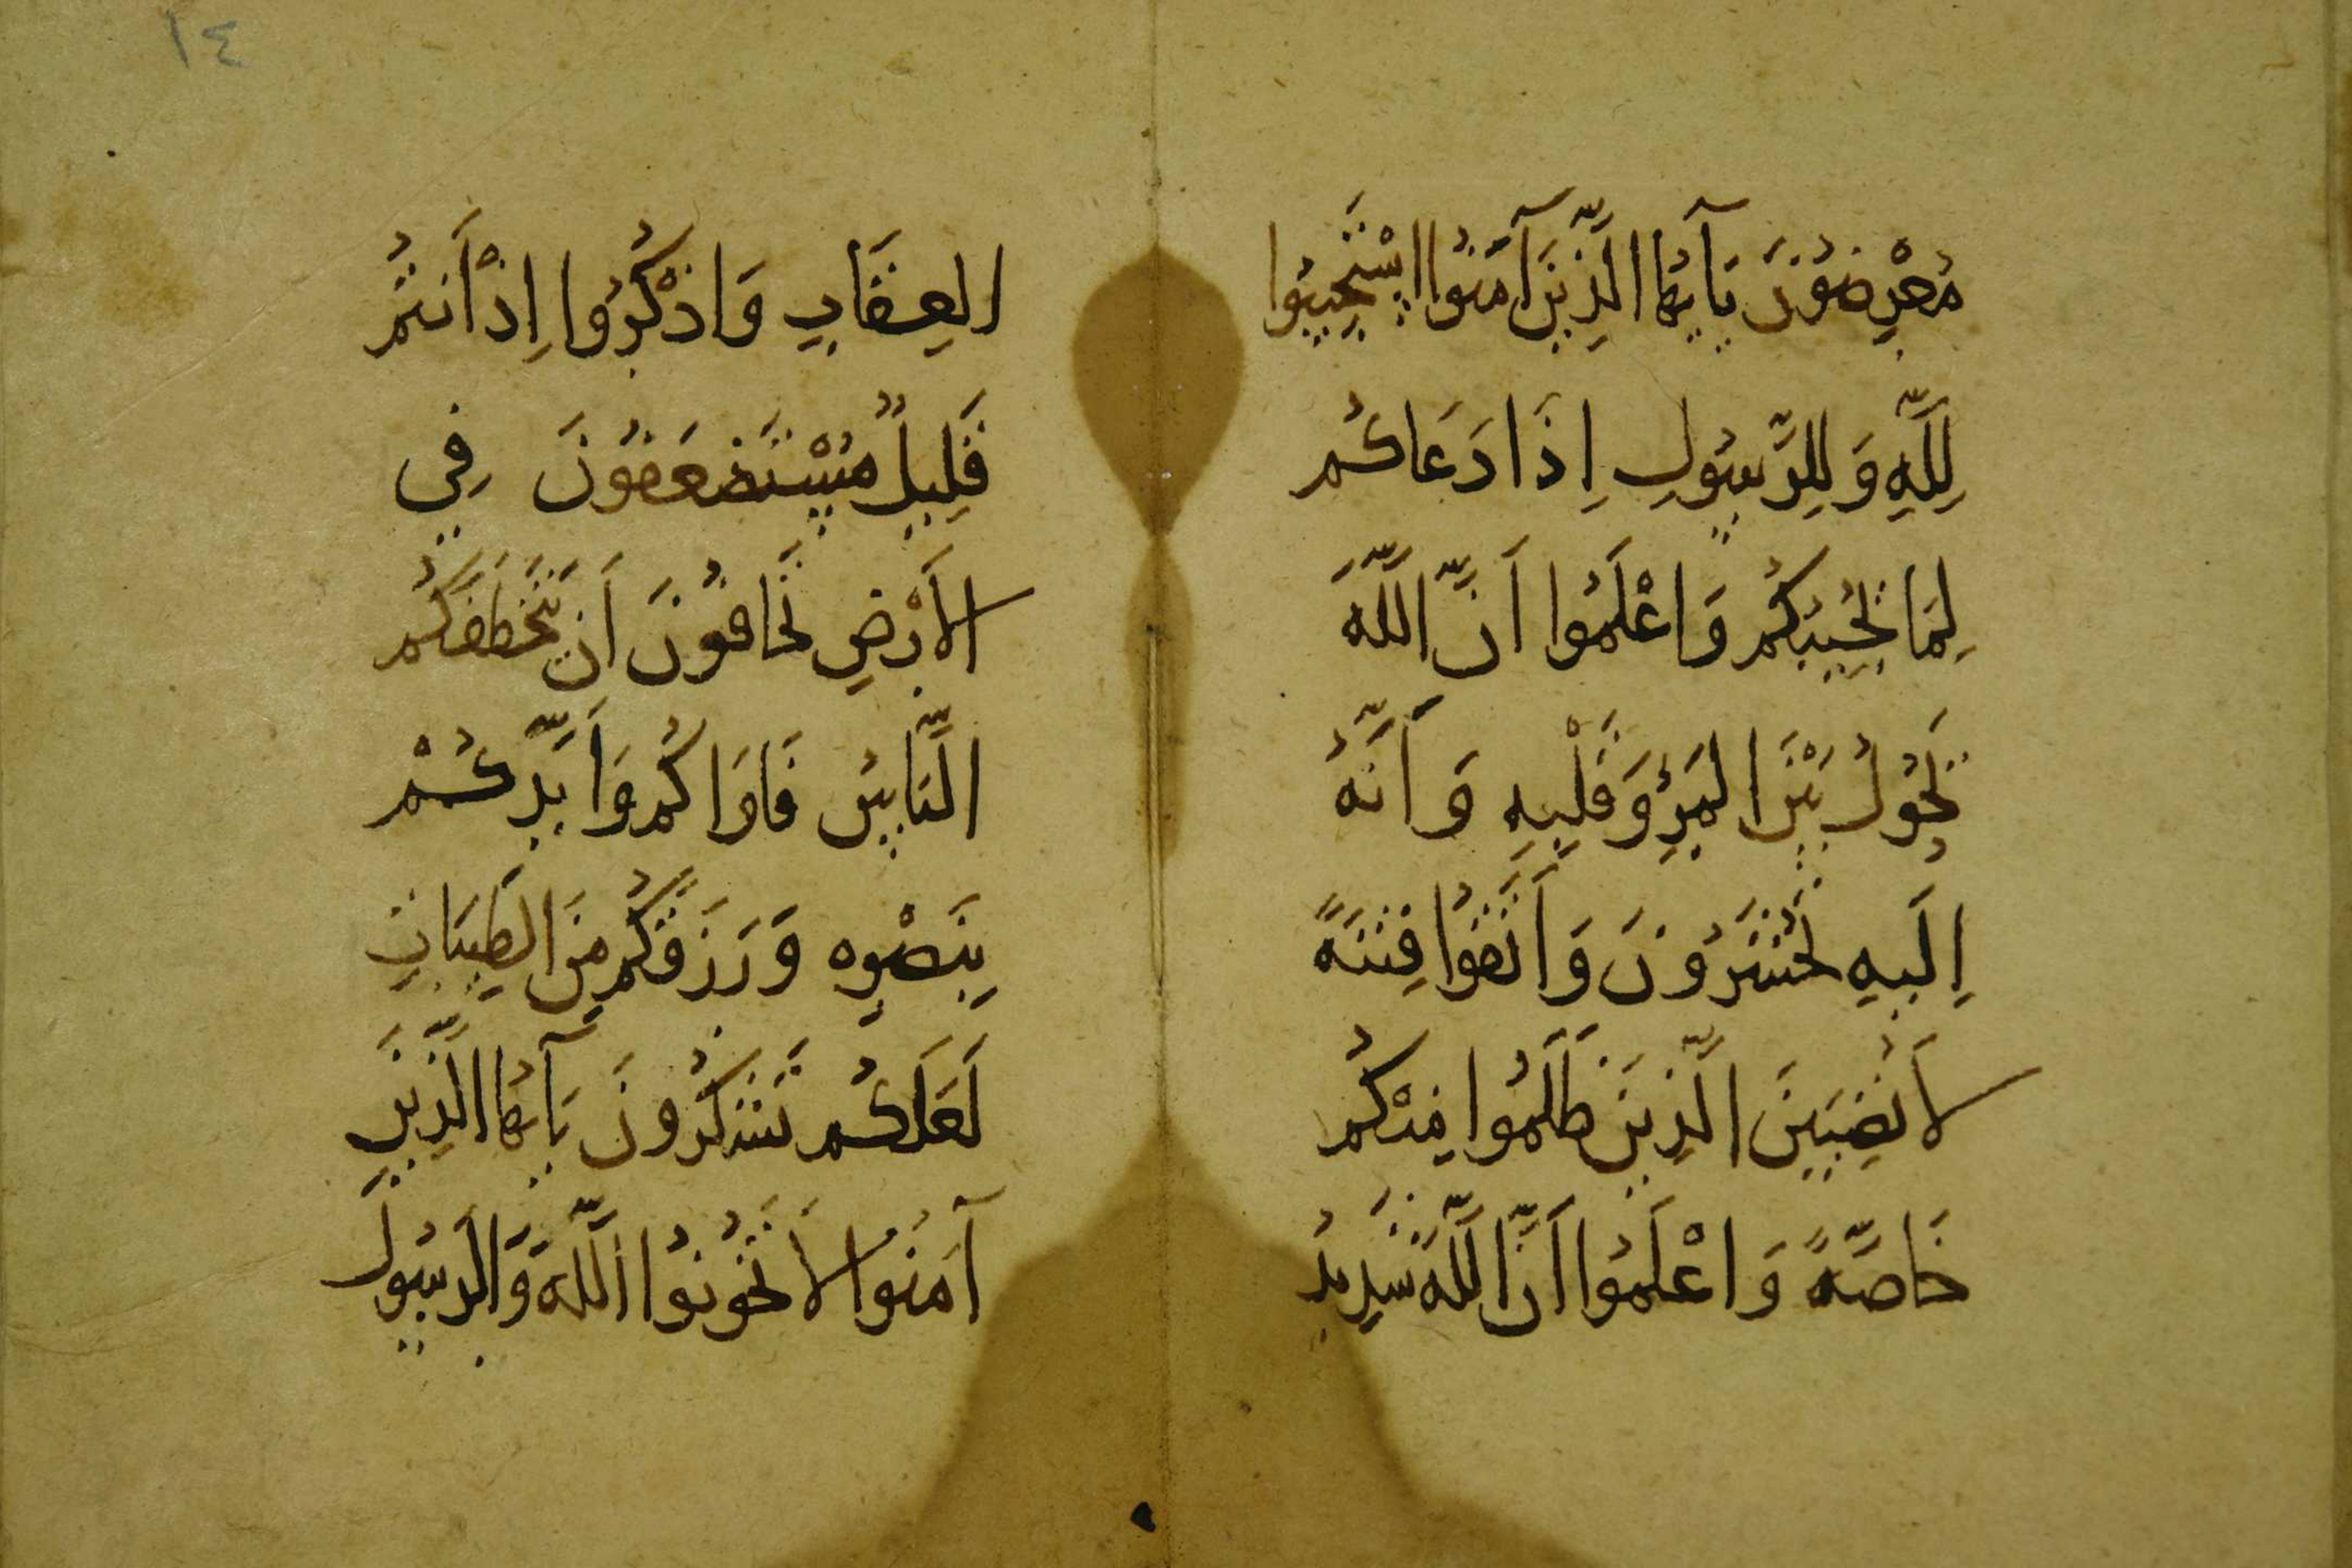 مُعْرِضُوْنَ يَآ اَيُّهَا الَّذِيْنَ آمَنُوا اسْتَجِيْبُوا
لِلّٰهِ وَلِلرَّسُوْلِ اِذَا دَعَاكُم
لِمَا يُحْيِيْكُم وَاعْلَمُوا اَنَّ اللّٰهَ
يَحُوْلُ بَيْنَ المَرْءِ وَقَلْبِهِ وَاَنَّهُ
اِلَيهِ تُحْشَرُوْنَ وَاتَّقُوا فِتْنَةً
لَا تُصِيْبَنَّ الَّذِيْنَ ظَلَمُوا مِنْكُم
خَاصَّةً وَاعْلَمُوا اَنَّ اللّٰهَ شَدِيْدُ
١٤
العِقَابِ وَاذْكُرُوا اِذْ اَنتُم
قَلِيْلٌ مُسْتَضعَفُوْنَ فِي
الاَرْضِ تَخَافُوْنَ اَن يَتَخَطَّفَكُم
النَّاسُ فَاوَاكُم وَاَيَّدَكُمْ
بِنَصْرِه وَرَزَقَكُم مِنَ الطَيِبَاتِ
لَعَلَكُم تَشكُرُونَ يَآ اَيُّهَا الَّذِيْنَ
آمَنُوا لَا تَخُونُوا اللّٰهَ وَالرَسُولَ